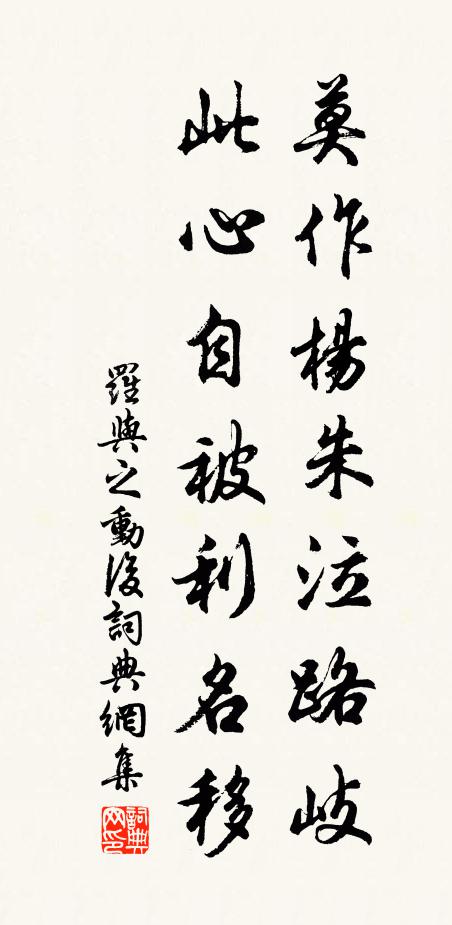 莫作楊朱泣路岐
此心自被利名移
羅與之動後詞典網集
詞典网印